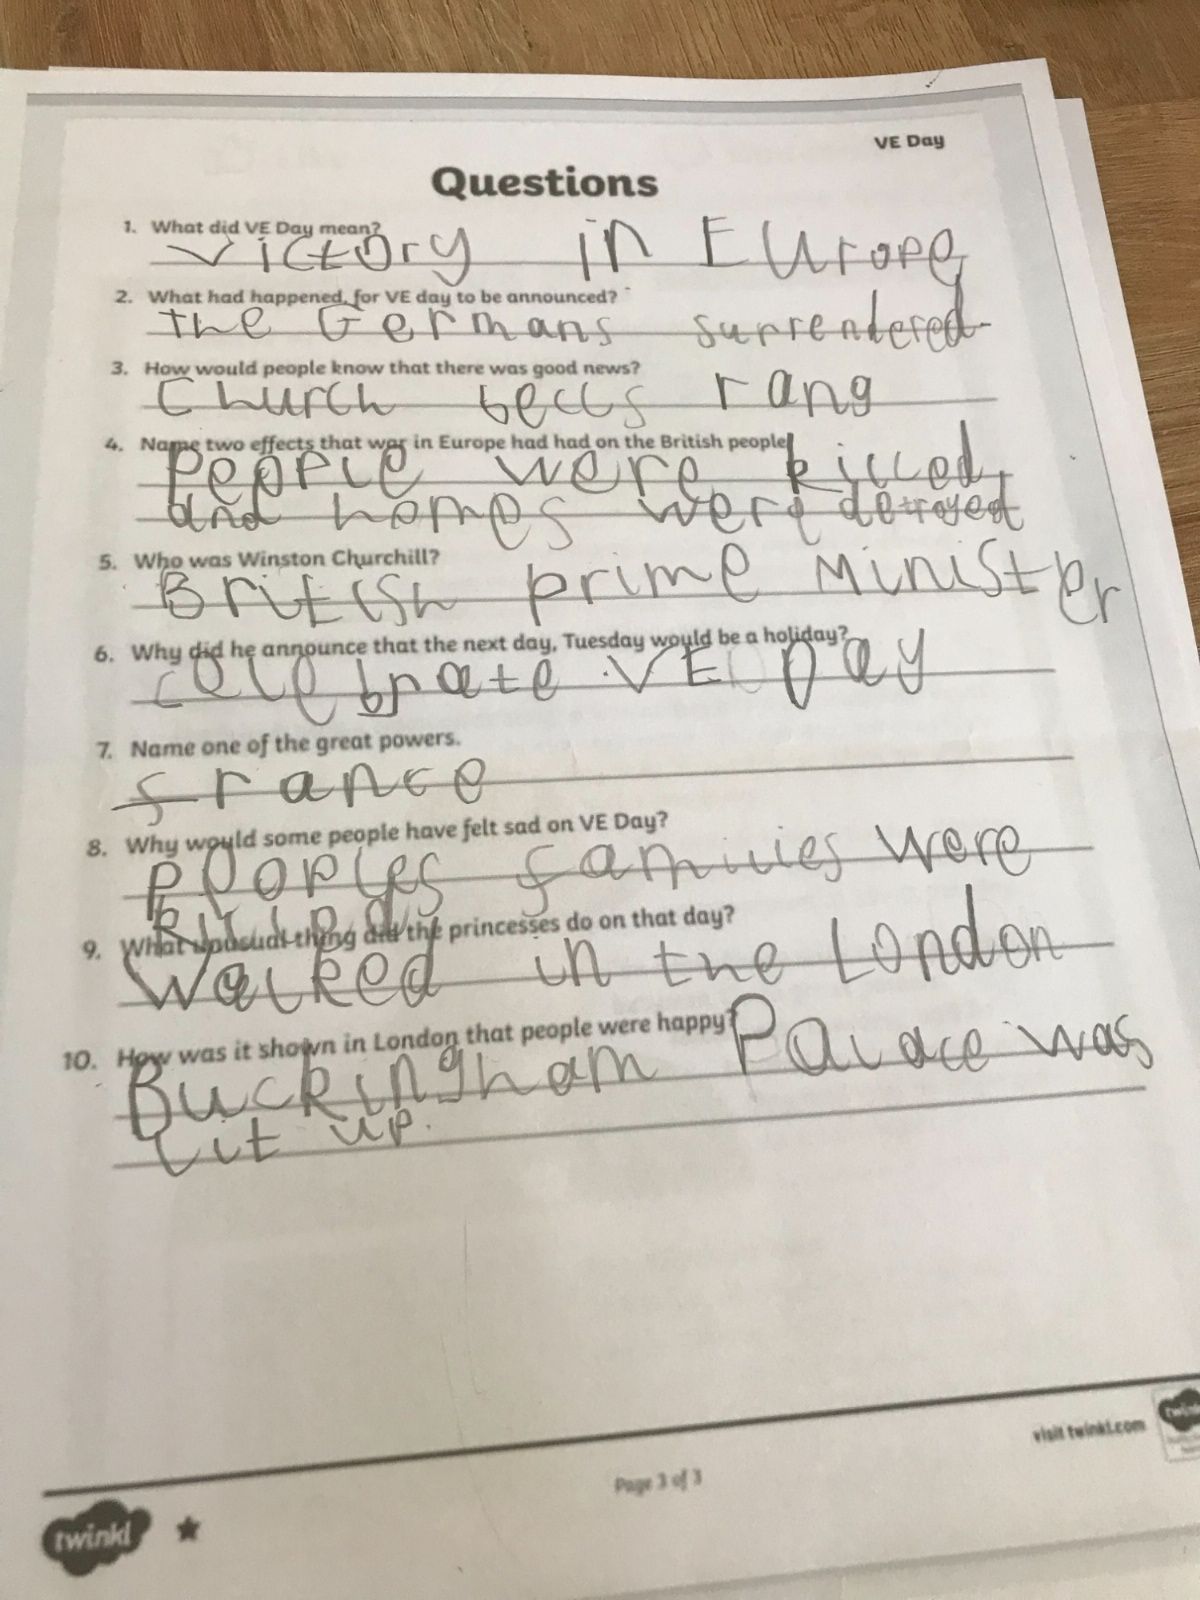 VE Day
Questions
1. What did VE Day mean?
victory in Europe
2. What had happened, for VE day to be announced?
the Germans surrendered
3. How would people know that there was good news?
Church bells rang
4. Name two effects that war in Europe had had on the British people
People were killed
and homes were detroyed
5. Who was Winston Churchill?
British prime Minister
6. Why did he announce that the next day, Tuesday would be a holiday?
celebrate VE Day
7. Name one of the great powers.
france
8. Why would some people have felt sad on VE Day?
peoples families were
killed
9. What unusual thing did the princesses do on that day?
Walked in the London
10. How was it shown in London that people were happy?
Buckingham Palace was
lit up.
visit twinkl.com
Page 3 of 3
twinkl